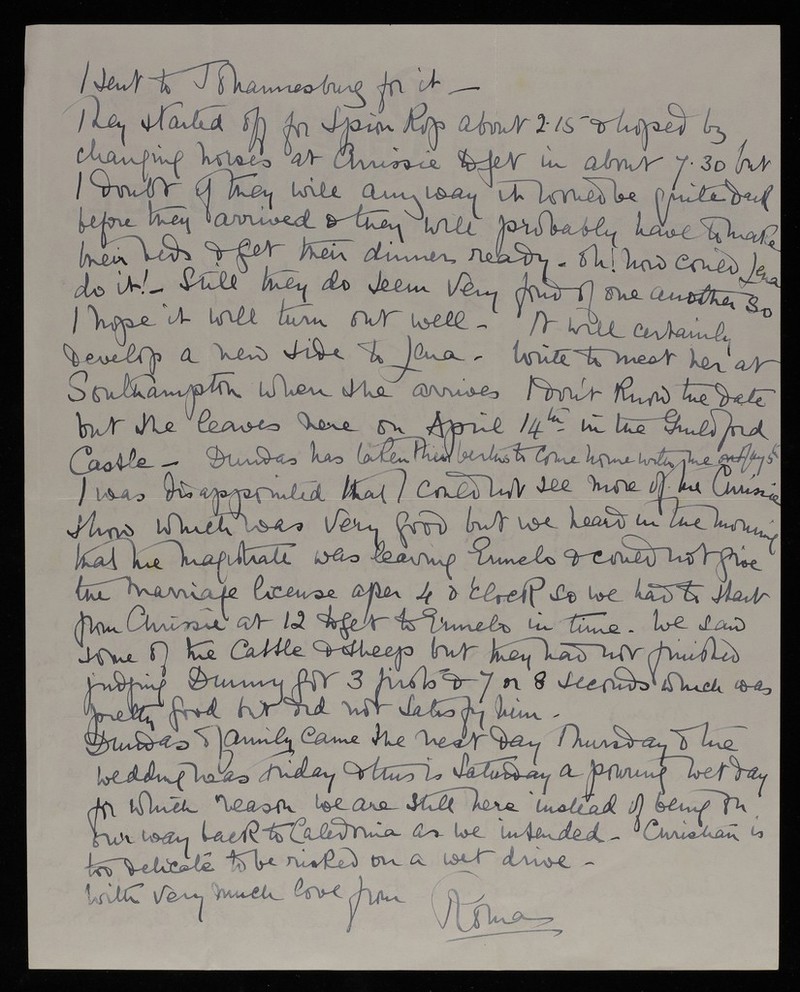 I sent to Johannesburg for it —
They started off for Spion Kop about 2.15 & hoped by
changing horses at Chrissie to get in about 7.30 but
I doubt if they will anyway it would be quite dark
before they arrived & they will probably have to make
their beds & get their dinners ready - oh! how could Jena
do it! - Still they do seem very fond of one another so
I hope it will turn out well - It will certainly
develop a new side to Jena - Write to meet her at
Southampton when she arrives I don't know the date
but she leaves here on April 14th in the Guildford
Castle - Dundas has taken their berths to come home with me
I was disappointed that I could not see more of the Chrissie
Show which was very good but we heard in the morning
that the Magistrate was leaving Ermelo & could not give
the marriage license after 4 o'clock so we had to start
from Chrissie at 12 to get to Ermelo in time - We saw
some of the Cattle & Sheep but they had not finished
judging Dummy got 3 firsts & 7 or 8 seconds which was
pretty good but did not satisfy him -
Dundas & family came the next day Thursday & the
wedding was Friday & this is Saturday a pouring wet day
for which reason we are still here instead of being on
our way back to Caledonia as we intended - Christian is
too delicate to be risked on a wet drive -
With very much love from
Roma